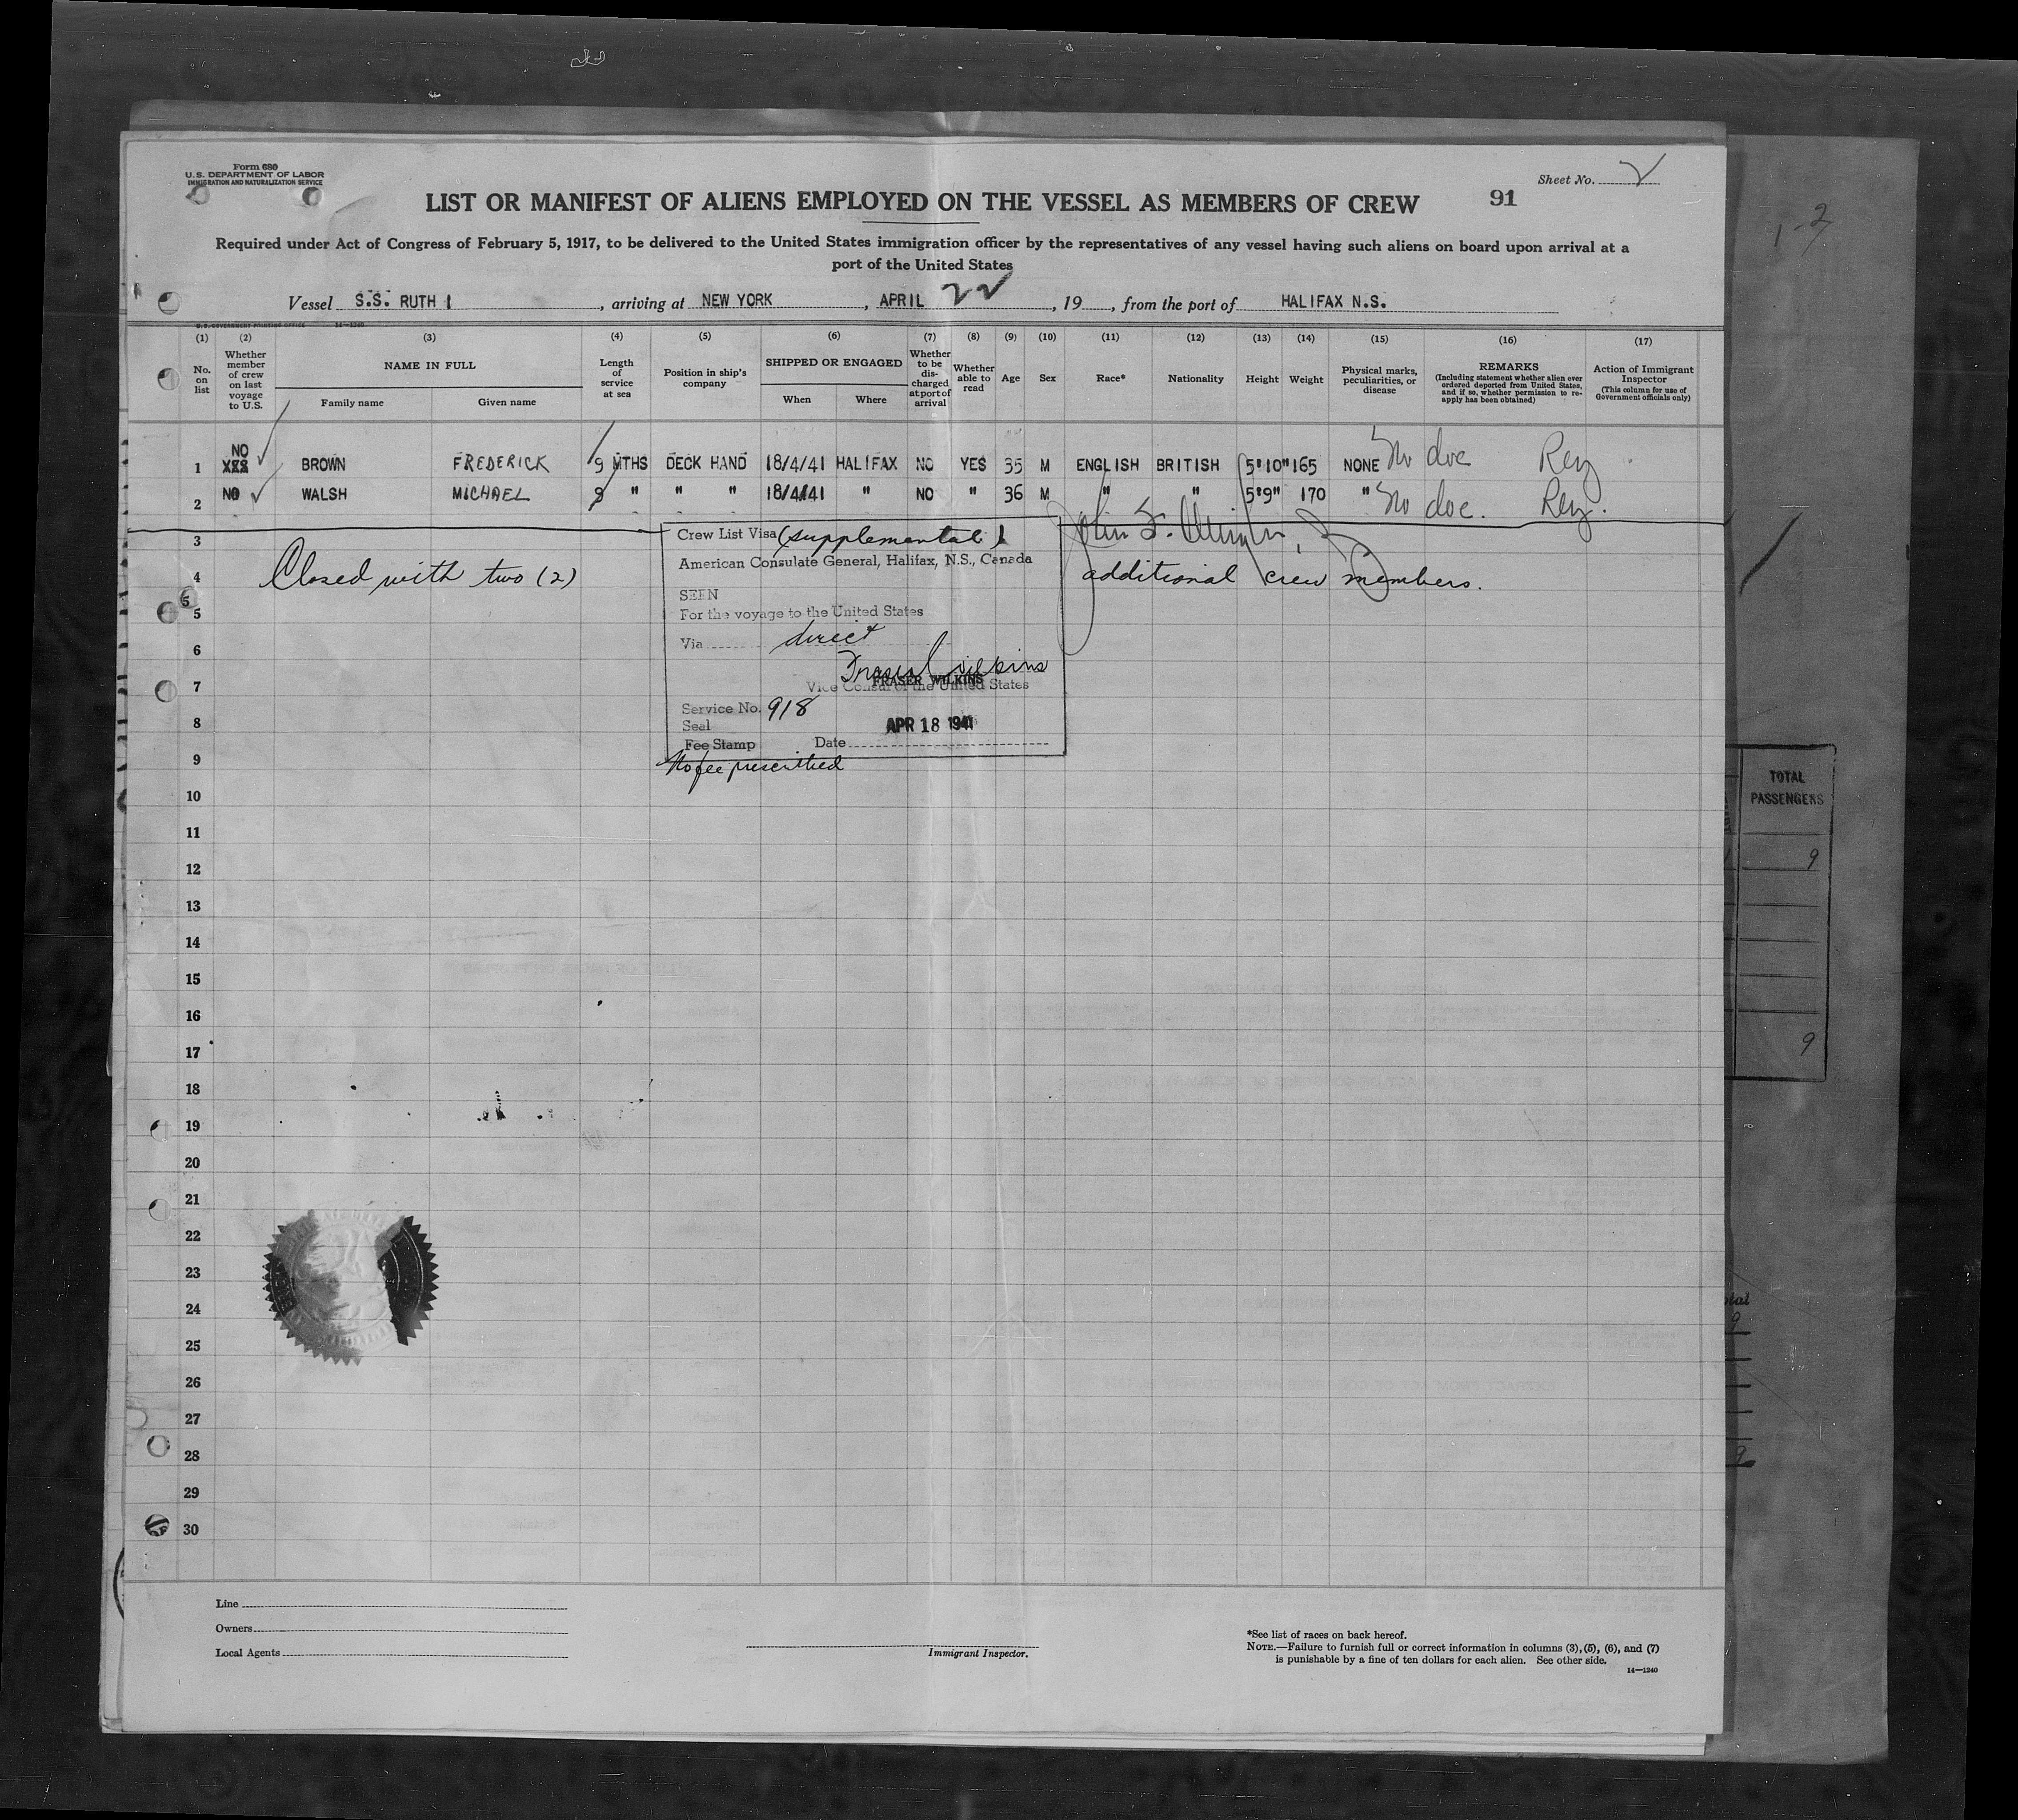 Form 680
U. S. DEPARTMENT OF LABOR
IMMIGRATION AND NATURALIZATION SERVICE
Sheet No. 2
LIST OR MANIFEST OF ALIENS EMPLOYED ON THE VESSEL AS MEMBERS OF CREW 91
Required under Act of Congress of February 5, 1917, to be delivered to the United States immigration officer by the representatives of any vessel having such aliens on board upon arrival at a
port of the United States
Vessel S.S. RUTH I, arriving at NEW YORK, APRIL 22, 19, from the port of HALIFAX N.S.
U.S. GOVERNMENT PRINTING OFFICE 14—1240
(1) (2) (3) (4) (5) (6) (7) (8) (9) (10) (11) (12) (13) (14) (15) (16) (17)
No. on list
Whether member of crew on last voyage to U.S.
NAME IN FULL
Family name
Given name
Length of service at sea
Position in ship's company
SHIPPED OR ENGAGED
When
Where
Whether to be discharged at port of arrival
Whether able to read
Age
Sex
Race*
Nationality
Height
Weight
Physical marks, peculiarities, or disease
REMARKS
(Including statement whether alien ever ordered deported from United States, and if so, whether permission to reapply has been obtained)
Action of Immigrant Inspector
(This column for use of Government officials only)
1 NO BROWN FREDERICK 9 MTHS DECK HAND 18/4/41 HALIFAX NO YES 35 M ENGLISH BRITISH 5'10" 165 NONE No doc Rey
2 NO WALSH MICHAEL 9 " " " 18/4/41 " NO " 36 M " " 5'9" 170 " No doc. Rey.
3
4 Closed with two (2) additional crew members.
Crew List Visa (supplemental)
American Consulate General, Halifax, N.S., Canada
SEEN
For the voyage to the United States
Via direct
Fraser Wilkins
FRASER WILKINS
Vice Consul of the United States
Service No. 918
Seal
APR 18 1941
Fee Stamp Date
No fee prescribed
5
5
6
7
8
9
10
11
12
13
14
15
16
17
18
19
20
21
22
23
24
25
26
27
28
29
30
TOTAL
PASSENGERS
9
9
Line
Owners
Local Agents
Immigrant Inspector.
*See list of races on back hereof.
NOTE.—Failure to furnish full or correct information in columns (3), (5), (6), and (7)
is punishable by a fine of ten dollars for each alien. See other side.
14—1240